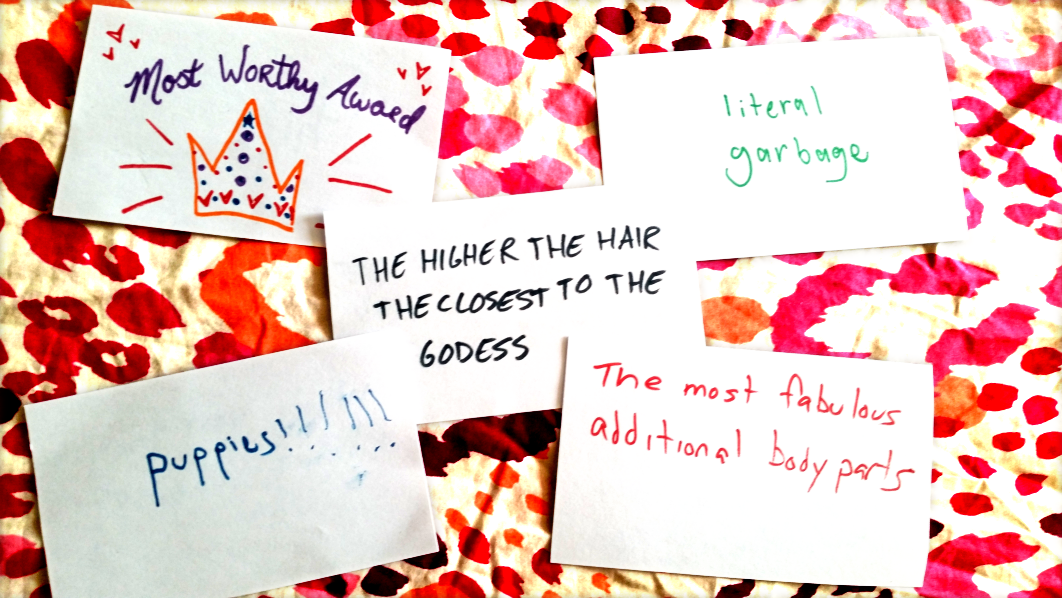 Most Worthy Award
literal
garbage
THE HIGHER THE HAIR
THE CLOSEST TO THE
GODESS
puppies!!!!!!
The most fabulous
additional body parts